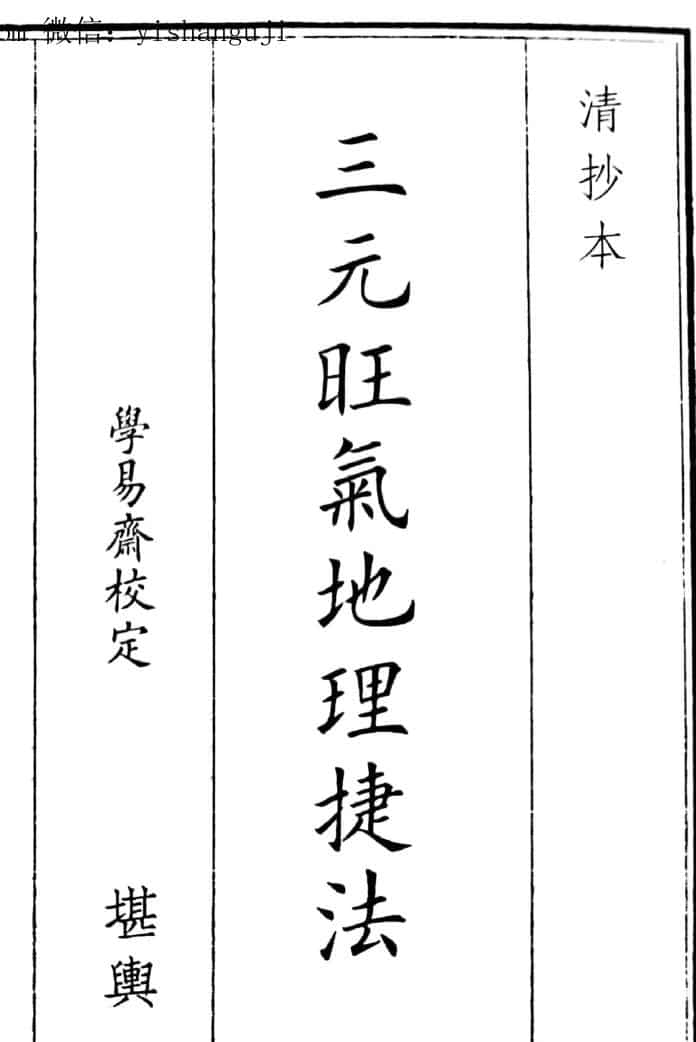 m 微信: yishanguji
清抄本
三元旺氣地理捷法
學易齋校定
堪輿